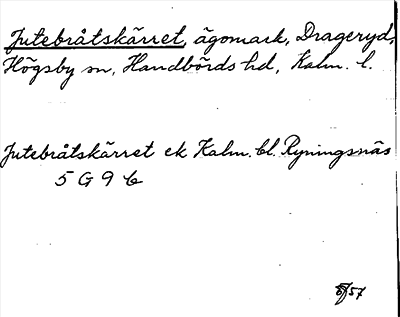 Jutebråtskärret, ägomark, Drageryd,
Högsby sn, Handbörds hd, Kalm. l.
Jutebråtskärret ek Kalm. bl. Ryningsnäs
5 G 9 b
/57